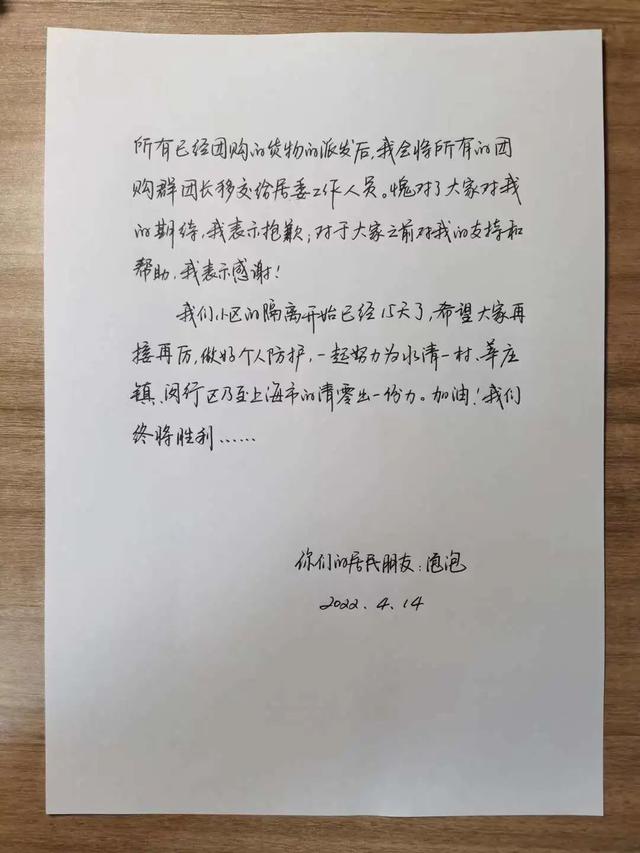 所有已经团购的货物的派发后,我会将所有的团
购群团长移交给居委工作人员。愧对了大家对我
的期待,我表示抱歉;对于大家之前对我的支持和
帮助,我表示感谢!
我们小区的隔离开始已经15天了,希望大家再
接再厉,做好个人防护,一起努力为水清一村、莘庄
镇、闵行区乃至上海市的清零出一份力。加油!我们
终将胜利......
你们的居民朋友:泡泡
2022.4.14